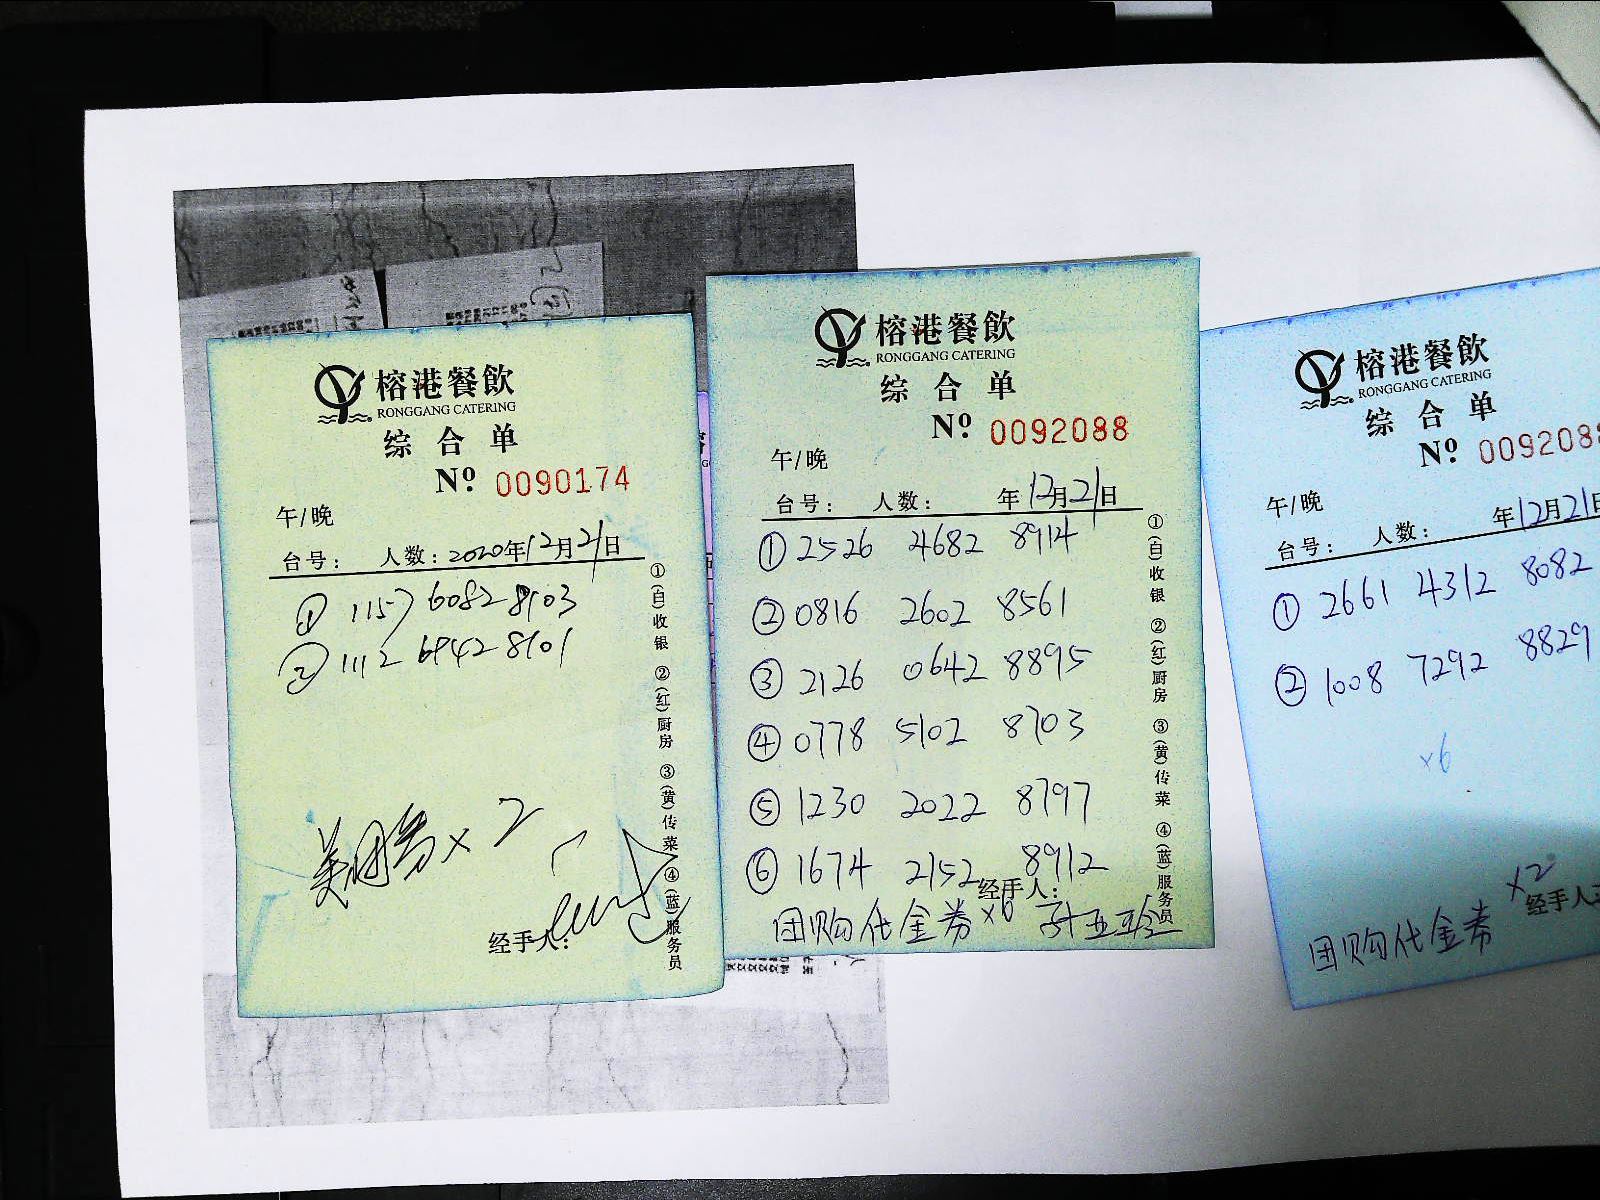 榕港餐飲
RONGGANG CATERING
综合单
Nº 0090174
午/晚
台号： 人数：2020年12月21日
① 1157 6082 8103
② 1112 6942 8101
美团券×2
经手人：
①(白)收银 ②(红)厨房 ③(黄)传菜 ④(蓝)服务员
榕港餐飲
RONGGANG CATERING
综合单
Nº 0092088
午/晚
台号： 人数： 年12月21日
① 2526 4682 8914
② 0816 2602 8561
③ 2126 0642 8895
④ 0778 5102 8703
⑤ 1230 2022 8797
⑥ 1674 2152 8912
经手人：
团购代金券×6
①(白)收银 ②(红)厨房 ③(黄)传菜 ④(蓝)服务员
榕港餐飲
RONGGANG CATERING
综合单
Nº 009208
午/晚
台号： 人数： 年12月21日
① 2661 4312 8082
② 1008 7292 8829
×6
×2
经手人
团购代金券